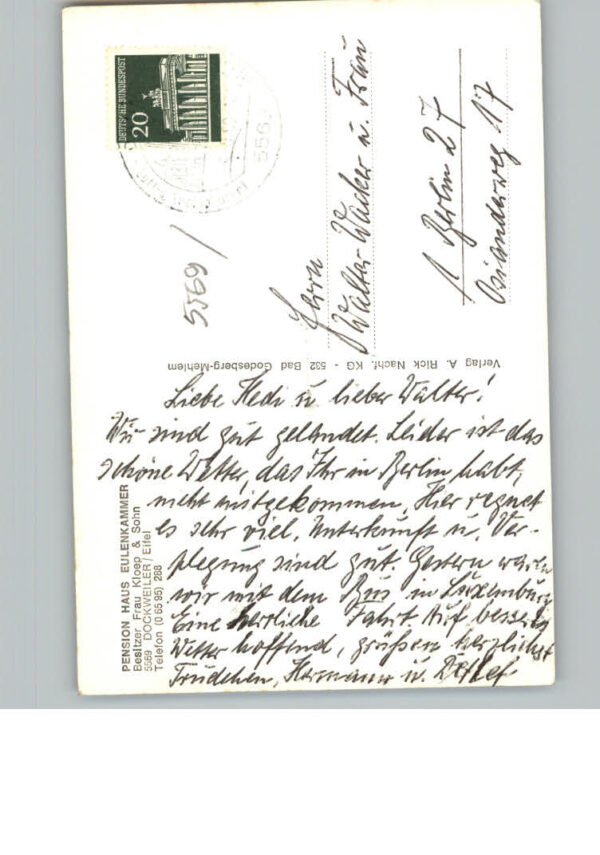 DEUTSCHE BUNDESPOST
20
556
5569 /
Herrn
Walter Wacker u. Frau
1 Berlin 27
Osianderweg 17
Verlag A. Rick Nachf. KG - 532 Bad Godesberg-Mehlem
Liebe Hedi u lieber Walter!
Wir sind gut gelandet. Leider ist das
schöne Wetter, das Ihr in Berlin habt,
nicht mitgekommen. Hier regnet
es sehr viel. Unterkunft u. Ver-
plegung sind gut. Gestern waren
wir mit dem Bus in Luxemburg
Eine herrliche Fahrt. Auf besseres
Wetter hoffend, grüßen herzlichst
Trudchen, Hermann u. Detlef
PENSION HAUS EULENKAMMER
Besitzer Frau Kloep & Sohn
5569 DOCKWEILER/Eifel
Telefon (0 65 95) 288